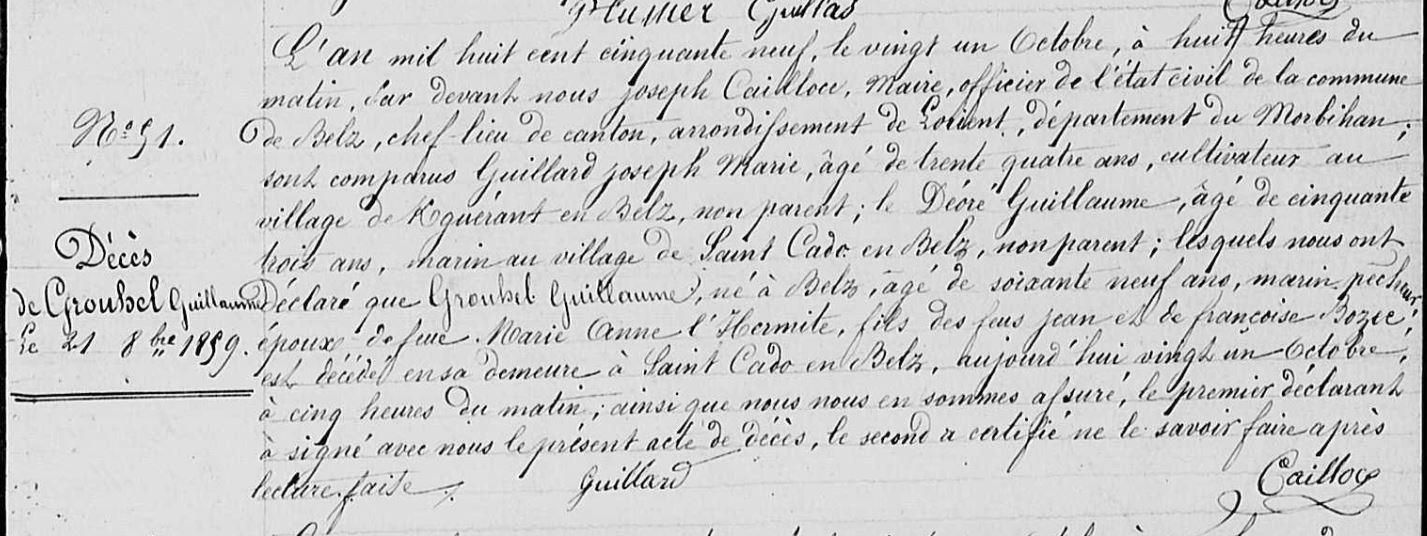 Plumer Guillas
N.o 51.
Décès
de Grouhel Guillaume
Le 21 8bre 1859.
L'an mil huit cent cinquante neuf, le vingt un Octobre, à huit heures du
matin, Par devant nous Joseph Cailloce, Maire, officier de l'état civil de la commune
de Belz, chef-lieu de canton, arrondissement de Lorient, département du Morbihan;
sont comparus Guillard Joseph Marie, âgé de trente quatre ans, cultivateur au
village de Kguérant en Belz, non parent; le Déoré Guillaume, âgé de cinquante
trois ans, marin au village de Saint Cado en Belz, non parent; lesquels nous ont
Déclaré que Grouhel Guillaume, né à Belz, âgé de soixante neuf ans, marin pêcheur,
époux de feue Marie Anne l'Hermite, fils des feus Jean et de françoise Bozec,
est décédé en sa demeure à Saint Cado en Belz, aujourd'hui vingt un Octobre,
à cinq heures du matin; ainsi que nous nous en sommes assuré, le premier déclarant
à signé avec nous le présent acte de décès, le second a certifié ne le savoir faire après
lecture faite.
Guillard
Cailloce